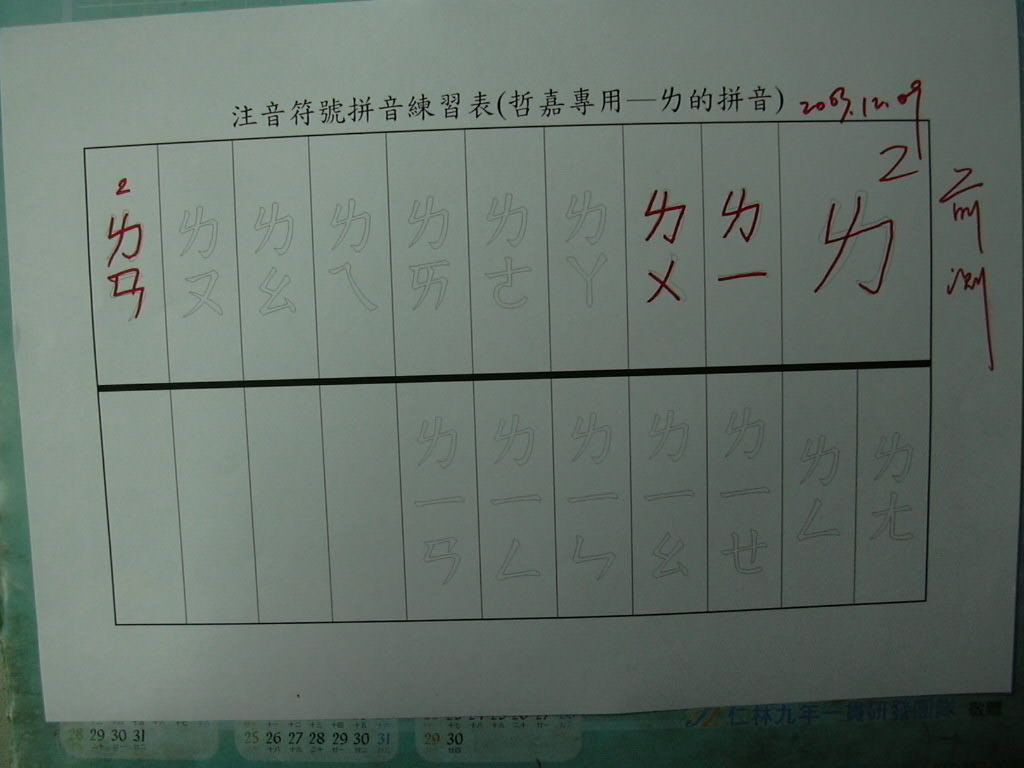 注音符號拼音練習表(哲嘉專用—ㄌ的拼音) 2003.12.09
2
ㄌ
ㄌㄧ
ㄌㄨ
ㄌㄚ
ㄌㄜ
ㄌㄞ
ㄌㄟ
ㄌㄠ
ㄌㄡ
2
ㄌㄢ
前測
ㄌㄤ
ㄌㄥ
ㄌㄧㄝ
ㄌㄧㄠ
ㄌㄧㄣ
ㄌㄧㄥ
ㄌㄧㄢ
28 29 30 31
25 26 27 28 29 30 31
29 30
仁林九年一貫研發團隊 敬贈